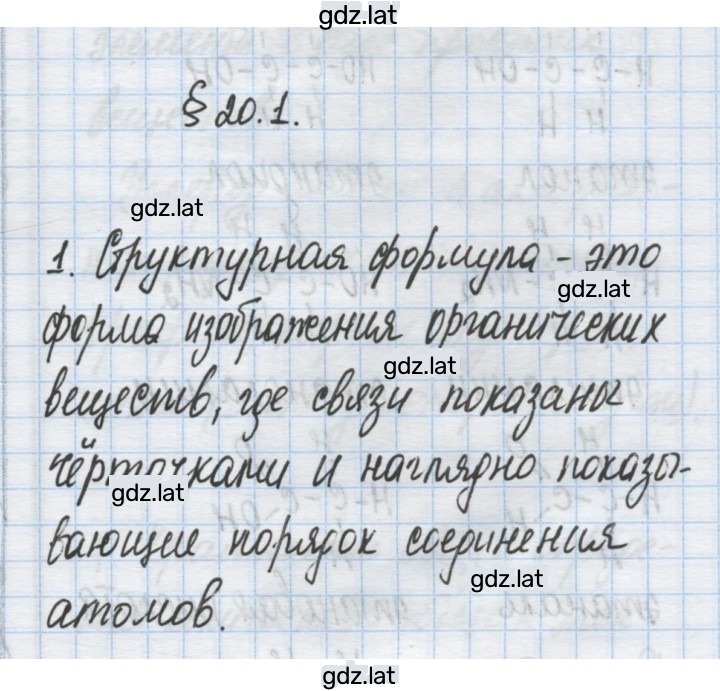 gdz.lat
§ 20.1.
gdz.lat
1. Структурная формула - это
gdz.lat
форма изображения органических
gdz.lat
веществ, где связи показаны
чёрточками и наглядно показы-
gdz.lat
вающие порядок соединения
gdz.lat
атомов.
gdz.lat